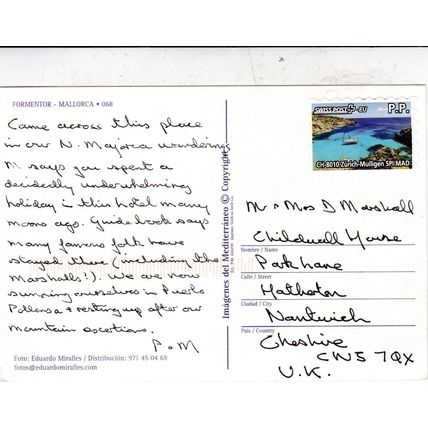 FORMENTOR - MALLORCA • 068
Came across this place
in our N. Majorca wanderings
M says you spent a
decidedly underwhelming
holiday in this hotel many
moons ago. Guide book says
many famous folk have
stayed there (including the
Marshalls!). We are now
sunning ourselves in Puerto
Pollensa & resting up after our
mountain exertions.
P & M
Foto: Eduardo Miralles / Distribución: 971 45 04 69
fotos@eduardomiralles.com
Imágenes del Mediterráneo © Copyright
SWISS POST EU
P.P.
CH-8010 Zürich-Mulligen SPI MAD
Mr & Mrs D Marshall
Childwall House
Nombre / Name
Park Lane
Calle / Street
Hatherton
Ciudad / City
Nantwich
País / Country
Cheshire
CW5 7QX
U.K.